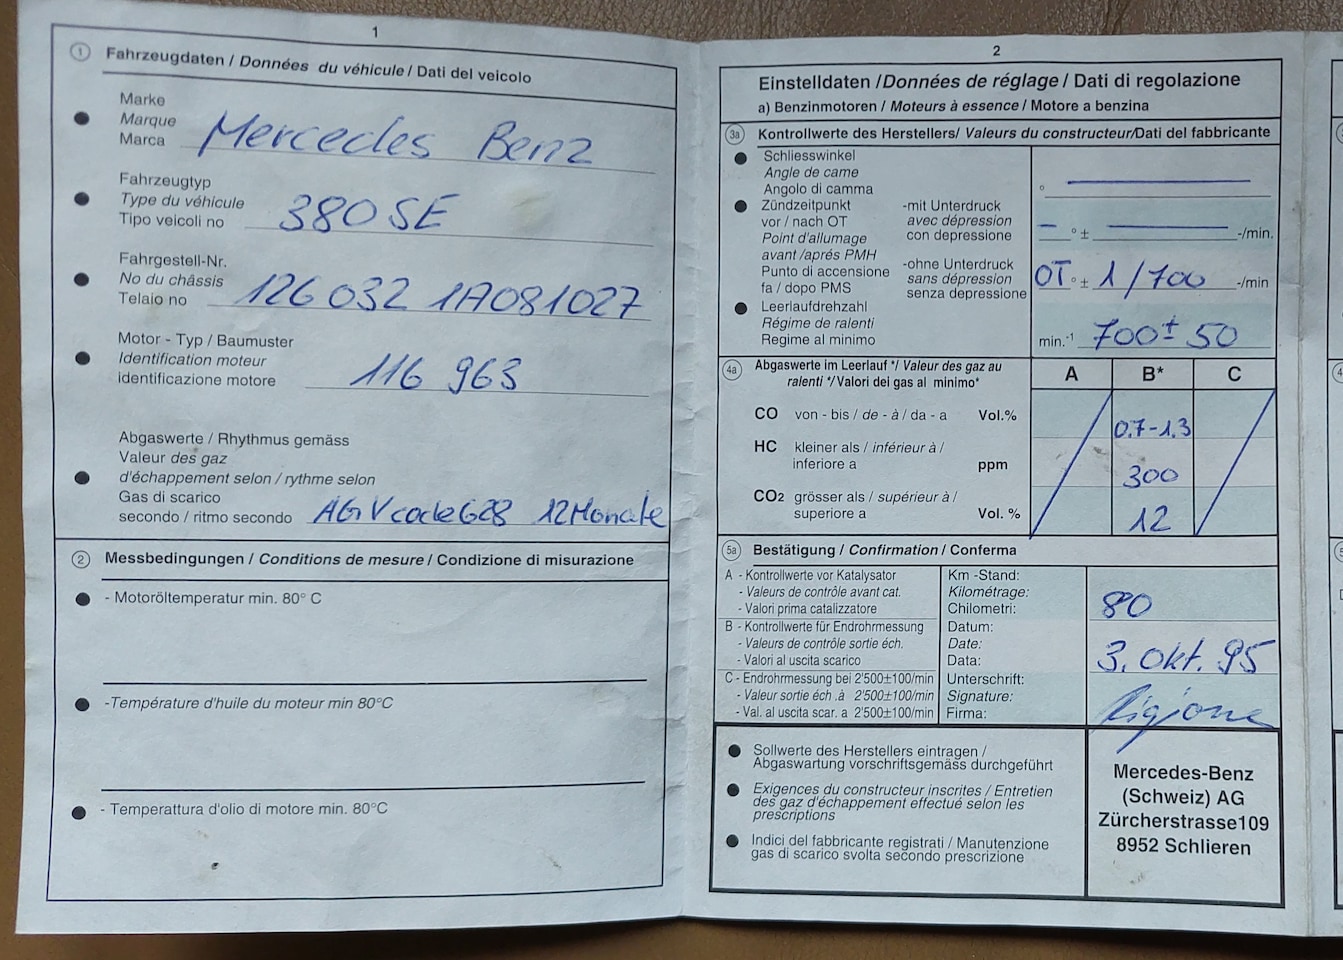 1
① Fahrzeugdaten / Données du véhicule / Dati del veicolo
Marke
Marque
Marca Mercedes Benz
Fahrzeugtyp
Type du véhicule
Tipo veicoli no 380 SE
Fahrgestell-Nr.
No du châssis
Telaio no 126 032 1A081027
Motor - Typ / Baumuster
Identification moteur
identificazione motore 116 963
Abgaswerte / Rhythmus gemäss
Valeur des gaz
d'échappement selon / rythme selon
Gas di scarico
secondo / ritmo secondo AGV code 628 12 Monate
② Messbedingungen / Conditions de mesure / Condizione di misurazione
- Motoröltemperatur min. 80° C
-Température d'huile du moteur min 80°C
- Temperattura d'olio di motore min. 80°C
2
Einstelldaten /Données de réglage / Dati di regolazione
a) Benzinmotoren / Moteurs à essence / Motore a benzina
3a Kontrollwerte des Herstellers/ Valeurs du constructeur/Dati del fabbricante
Schliesswinkel
Angle de came
Angolo di camma °
Zündzeitpunkt -mit Unterdruck
vor / nach OT avec dépression
Point d'allumage con depressione — ° ± — -/min.
avant /aprés PMH
Punto di accensione -ohne Unterdruck
fa / dopo PMS sans dépression OT ° ± 1/700 -/min
senza depressione
Leerlaufdrehzahl
Régime de ralenti
Regime al minimo min.-1 700 ± 50
4a Abgaswerte im Leerlauf */ Valeur des gaz au
ralenti */ Valori dei gas al minimo* A B* C
CO von - bis / de - à / da - a Vol.% 0.7-1.3
HC kleiner als / inférieur à /
inferiore a ppm 300
CO2 grösser als / supérieur à /
superiore a Vol. % 12
5a Bestätigung / Confirmation / Conferma
A - Kontrollwerte vor Katalysator
- Valeurs de contrôle avant cat.
- Valori prima catalizzatore
Km -Stand:
Kilométrage:
Chilometri: 80
B - Kontrollwerte für Endrohrmessung
- Valeurs de contrôle sortie éch.
- Valori al uscita scarico
Datum:
Date:
Data: 3. Okt. 95
C - Endrohrmessung bei 2'500±100/min
- Valeur sortie éch .à 2'500±100/min
- Val. al uscita scar. a 2'500±100/min
Unterschrift:
Signature:
Firma:
Sollwerte des Herstellers eintragen /
Abgaswartung vorschriftsgemäss durchgeführt
Exigences du constructeur inscrites / Entretien
des gaz d'échappement effectué selon les
prescriptions
Indici del fabbricante registrati / Manutenzione
gas di scarico svolta secondo prescrizione
Mercedes-Benz
(Schweiz) AG
Zürcherstrasse109
8952 Schlieren